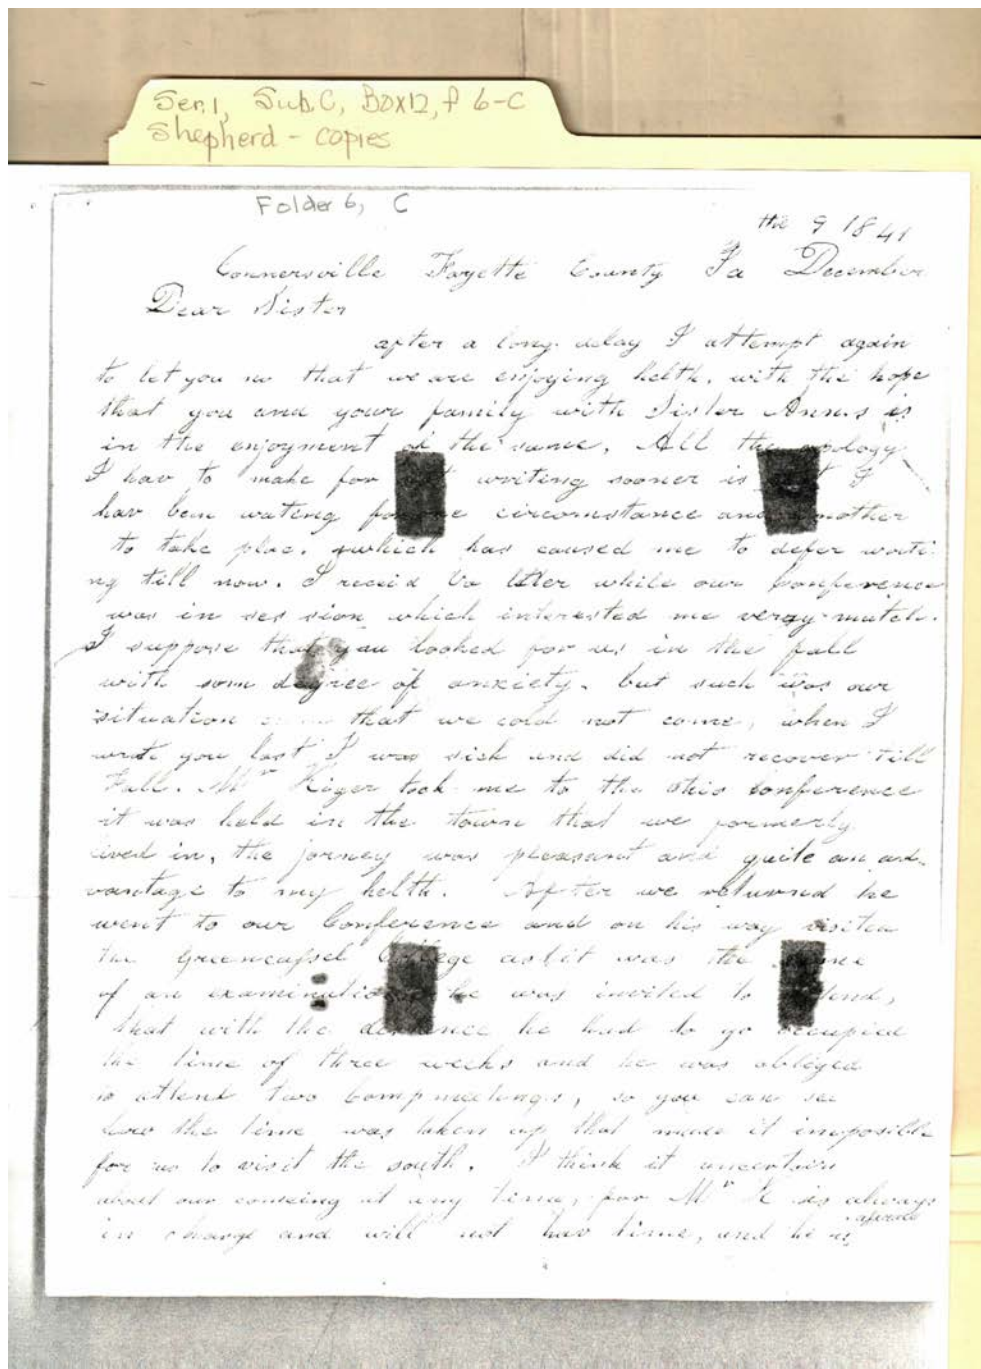 Ser.1, Sub.C, Box12, f 6-C
Shepherd - copies
Folder 6, C
the 9 1841
Connersville Fayette County Ia December
Dear Sister
after a long delay I attempt again
to let you no that we are enjoying helth, with the hope
that you and your family with Sister Anns is
in the enjoyment of the same. All the apology
I hav to make for writing sooner is I
hav been wateng for one circomstance and another
to take plac. which has caused me to defer writi
ng till now. I receid letter while our Conference
was in ses sion which interested me veray mutch.
I suppose that you looked for us in the fall
with som degree of anxiety. but such was our
situation that we cold not come, when I
wrote you last I was sick and did not recover till
Fall. Mr Kiger took me to the Ohio Conference
it was held in the town that we formerly
lived in, the jorney was pleasant and quite an ad-
vantage to my helth. After we returnd he
went to our Conference and on his way visited
the Greencasel College as it was the time
of an examination he was invited to attend,
that with the distance he had to go occupied
the time of three weeks and he was obliged
to attend two Campmeetings, so you can see
how the time was taken up that made it imposible
for us to visit the south. I think it uncertain
about our comeing at any time, for Mr K is always
in charge and will not hav time, and he is